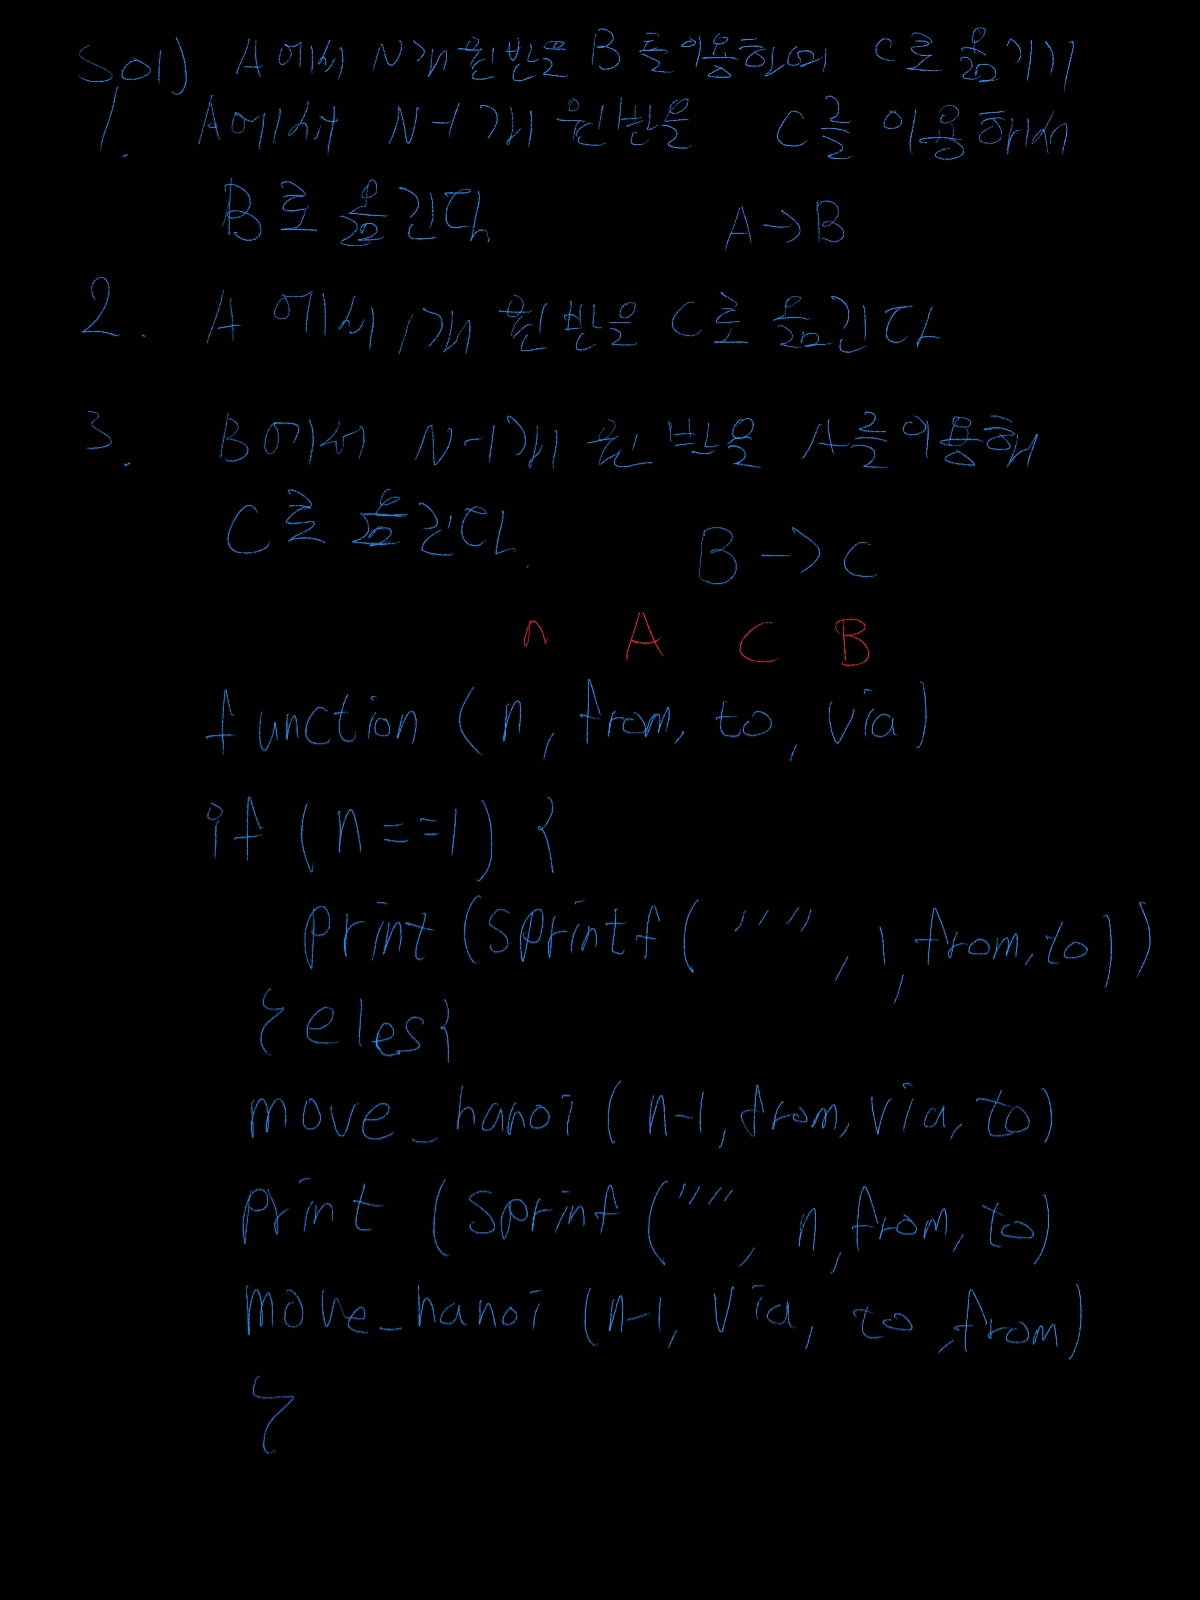 Sol) A에서 N개 원반을 B를 이용하여 C로 옮기기
1. A에서 N-1개 원반을 C를 이용해서
B로 옮긴다 A->B
2. A에서 1개 원반을 C로 옮긴다
3. B에서 N-1개 원반을 A를 이용해
C로 옮긴다. B->C
n A C B
function (n, from, to, via)
if (n==1) {
print (sprintf ("", 1, from, to))
} eles{
move_hanoi (n-1, from, via, to)
print (sprinf ("", n, from, to)
move_hanoi (n-1, via, to, from)
}